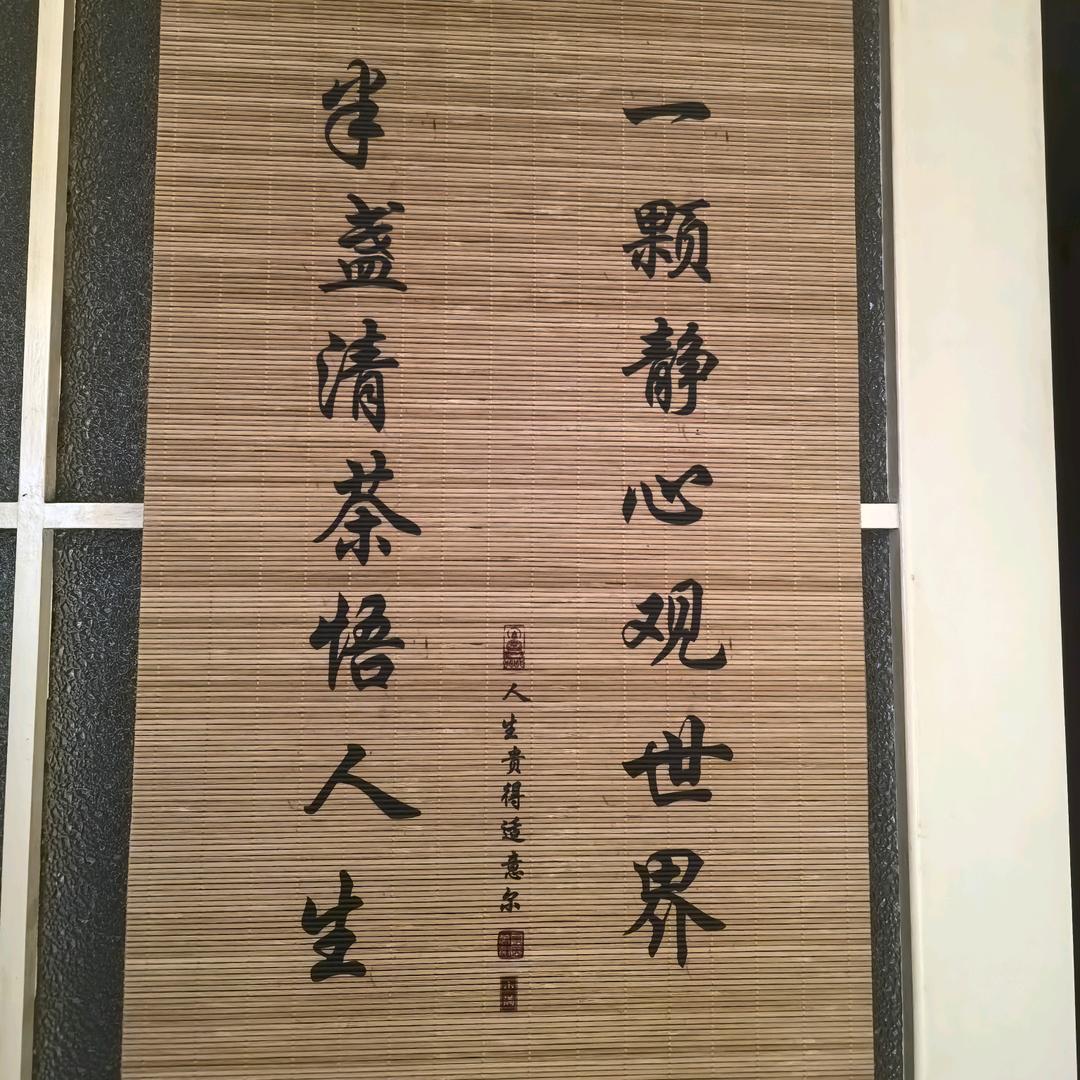 一颗静心观世界
人生贵得适意尔
半盏清茶悟人生